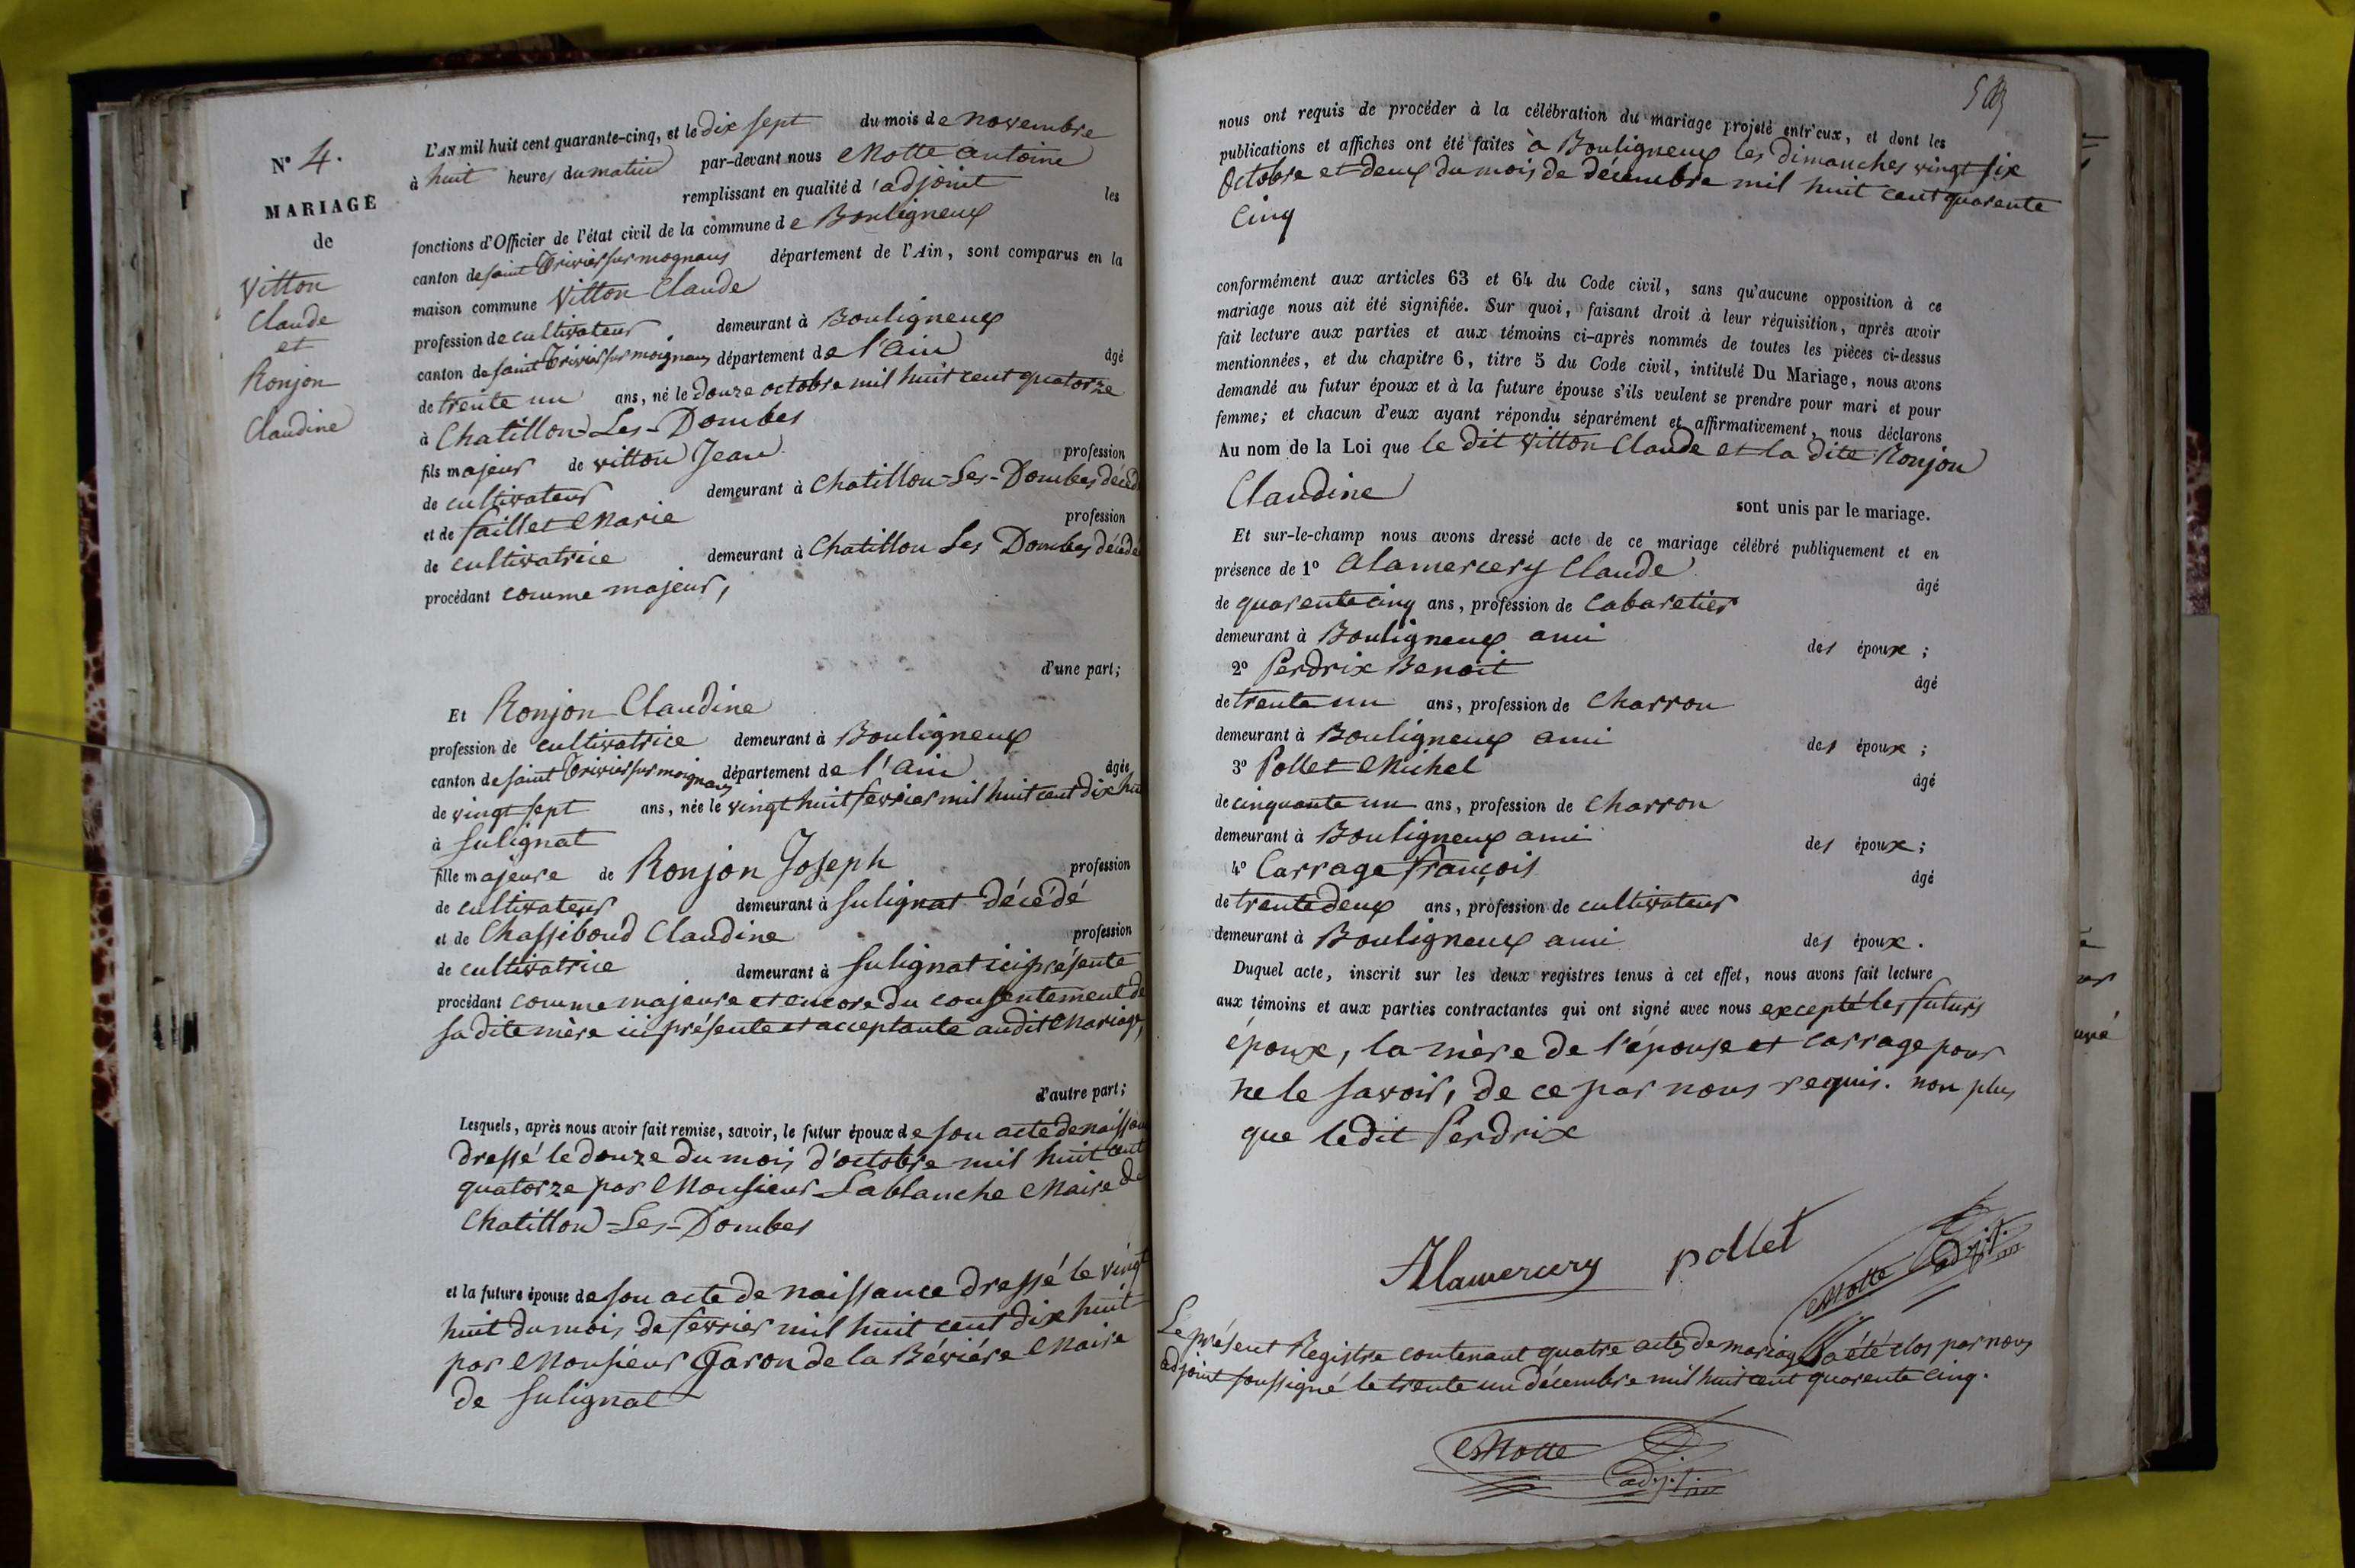 N° 4.
MARIAGE
de
Vitton
Claude
et
Ronjon
Claudine
L'AN mil huit cent quarante-cinq, et le dix sept du mois de novembre
à huit heures du matin par-devant nous Motte antoine
remplissant en qualité d'adjoint les
fonctions d'Officier de l'état civil de la commune de Bouligneux
canton de saint Trivier sur mognans département de l'Ain, sont comparus en la
maison commune Vitton Claude
profession de cultivateur demeurant à Bouligneux
canton de saint Trivier sur moignans département de l'ain âgé
de trente un ans, né le douze octobre mil huit cent quatorze
à Chatillon-Les-Dombes
fils majeur de vitton Jean profession
de cultivateur demeurant à Chatillon-Les-Dombes décédé
et de faillet Marie profession
de cultivatrice demeurant à Chatillon Les Dombes décédé
procédant comme majeur,
d'une part;
Et Ronjon Claudine
profession de cultivatrice demeurant à Bouligneux
canton de saint Trivier sur moignans département de l'ain âgée
de vingt sept ans, née le vingt huit fevrier mil huit cent dix hui
à Sulignat
fille majeure de Ronjon Joseph profession
de cultivateur demeurant à sulignat décédé
et de Chassiboud Claudine profession
de cultivatrice demeurant à sulignat ici présente
procédant comme majeure et encore du consentement de
sa dite mère ici présente et acceptante audit Mariage,
d'autre part;
Lesquels, après nous avoir fait remise, savoir, le futur époux de son acte de naissan
dressé le douze du mois d'octobre mil huit cent
quatorze par Monsieur Lablanche Maire de
Chatillon-Les-Dombes
et la future épouse de son acte de naissance dressé le vingt
huit du mois de fevrier mil huit cent dix huit
par Monsieur Garon de la Béviére Maire
de sulignat
nous ont requis de procéder à la célébration du mariage projeté entr'eux, et dont les
publications et affiches ont été faites à Bouligneux les dimanches vingt six
Octobre et deux du mois de décembre mil huit cent quarente
Cinq
conformément aux articles 63 et 64 du Code civil, sans qu'aucune opposition à ce
mariage nous ait été signifiée. Sur quoi, faisant droit à leur réquisition, après avoir
fait lecture aux parties et aux témoins ci-après nommés de toutes les pièces ci-dessus
mentionnées, et du chapitre 6, titre 5 du Code civil, intitulé Du Mariage, nous avons
demandé au futur époux et à la future épouse s'ils veulent se prendre pour mari et pour
femme; et chacun d'eux ayant répondu séparément et affirmativement, nous déclarons
Au nom de la Loi que le dit Vitton Claude et la dite Ronjon
Claudine
sont unis par le mariage.
Et sur-le-champ nous avons dressé acte de ce mariage célébré publiquement et en
présence de 1° Alamercery Claude âgé
de quarente cinq ans, profession de Cabaretier
demeurant à Bouligneux ami des époux;
2° Perdrix Benoit âgé
de trente un ans, profession de Charron
demeurant à Bouligneux ami des époux;
3° Pollet Michel âgé
de cinquante un ans, profession de Charron
demeurant à Bouligneux ami des époux;
4° Carrage françois âgé
de trente deux ans, profession de cultivateur
demeurant à Bouligneux ami des époux.
Duquel acte, inscrit sur les deux registres tenus à cet effet, nous avons fait lecture
aux témoins et aux parties contractantes qui ont signé avec nous excepté les futurs
époux, la mère de l'épouse et carrage pour
ne le savoir, de ce par nous requis. non plus
que ledit Perdrix
Alamercery pollet
Motte adj.t
Le présent Registre contenant quatre actes de mariage a été clos par nous
adjoint soussigné le trente un décembre mil huit cent quarente cinq.
Motte
adj.t